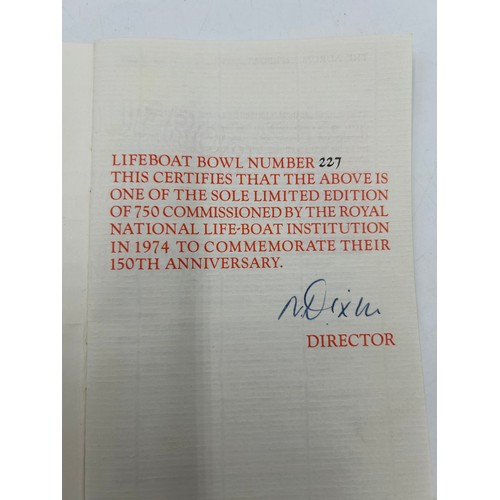 LIFEBOAT BOWL NUMBER 227
THIS CERTIFIES THAT THE ABOVE IS
ONE OF THE SOLE LIMITED EDITION
OF 750 COMMISSIONED BY THE ROYAL
NATIONAL LIFE-BOAT INSTITUTION
IN 1974 TO COMMEMORATE THEIR
150TH ANNIVERSARY.
DIRECTOR